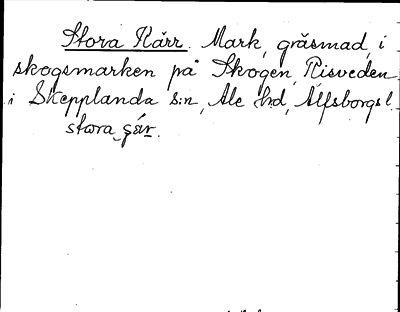 Stora Kärr. Mark, gräsmad, i
skogsmarken på Skogen, Risveden
i Skepplanda s:n, Ale hd, Älfsborgs l.
stora çär.